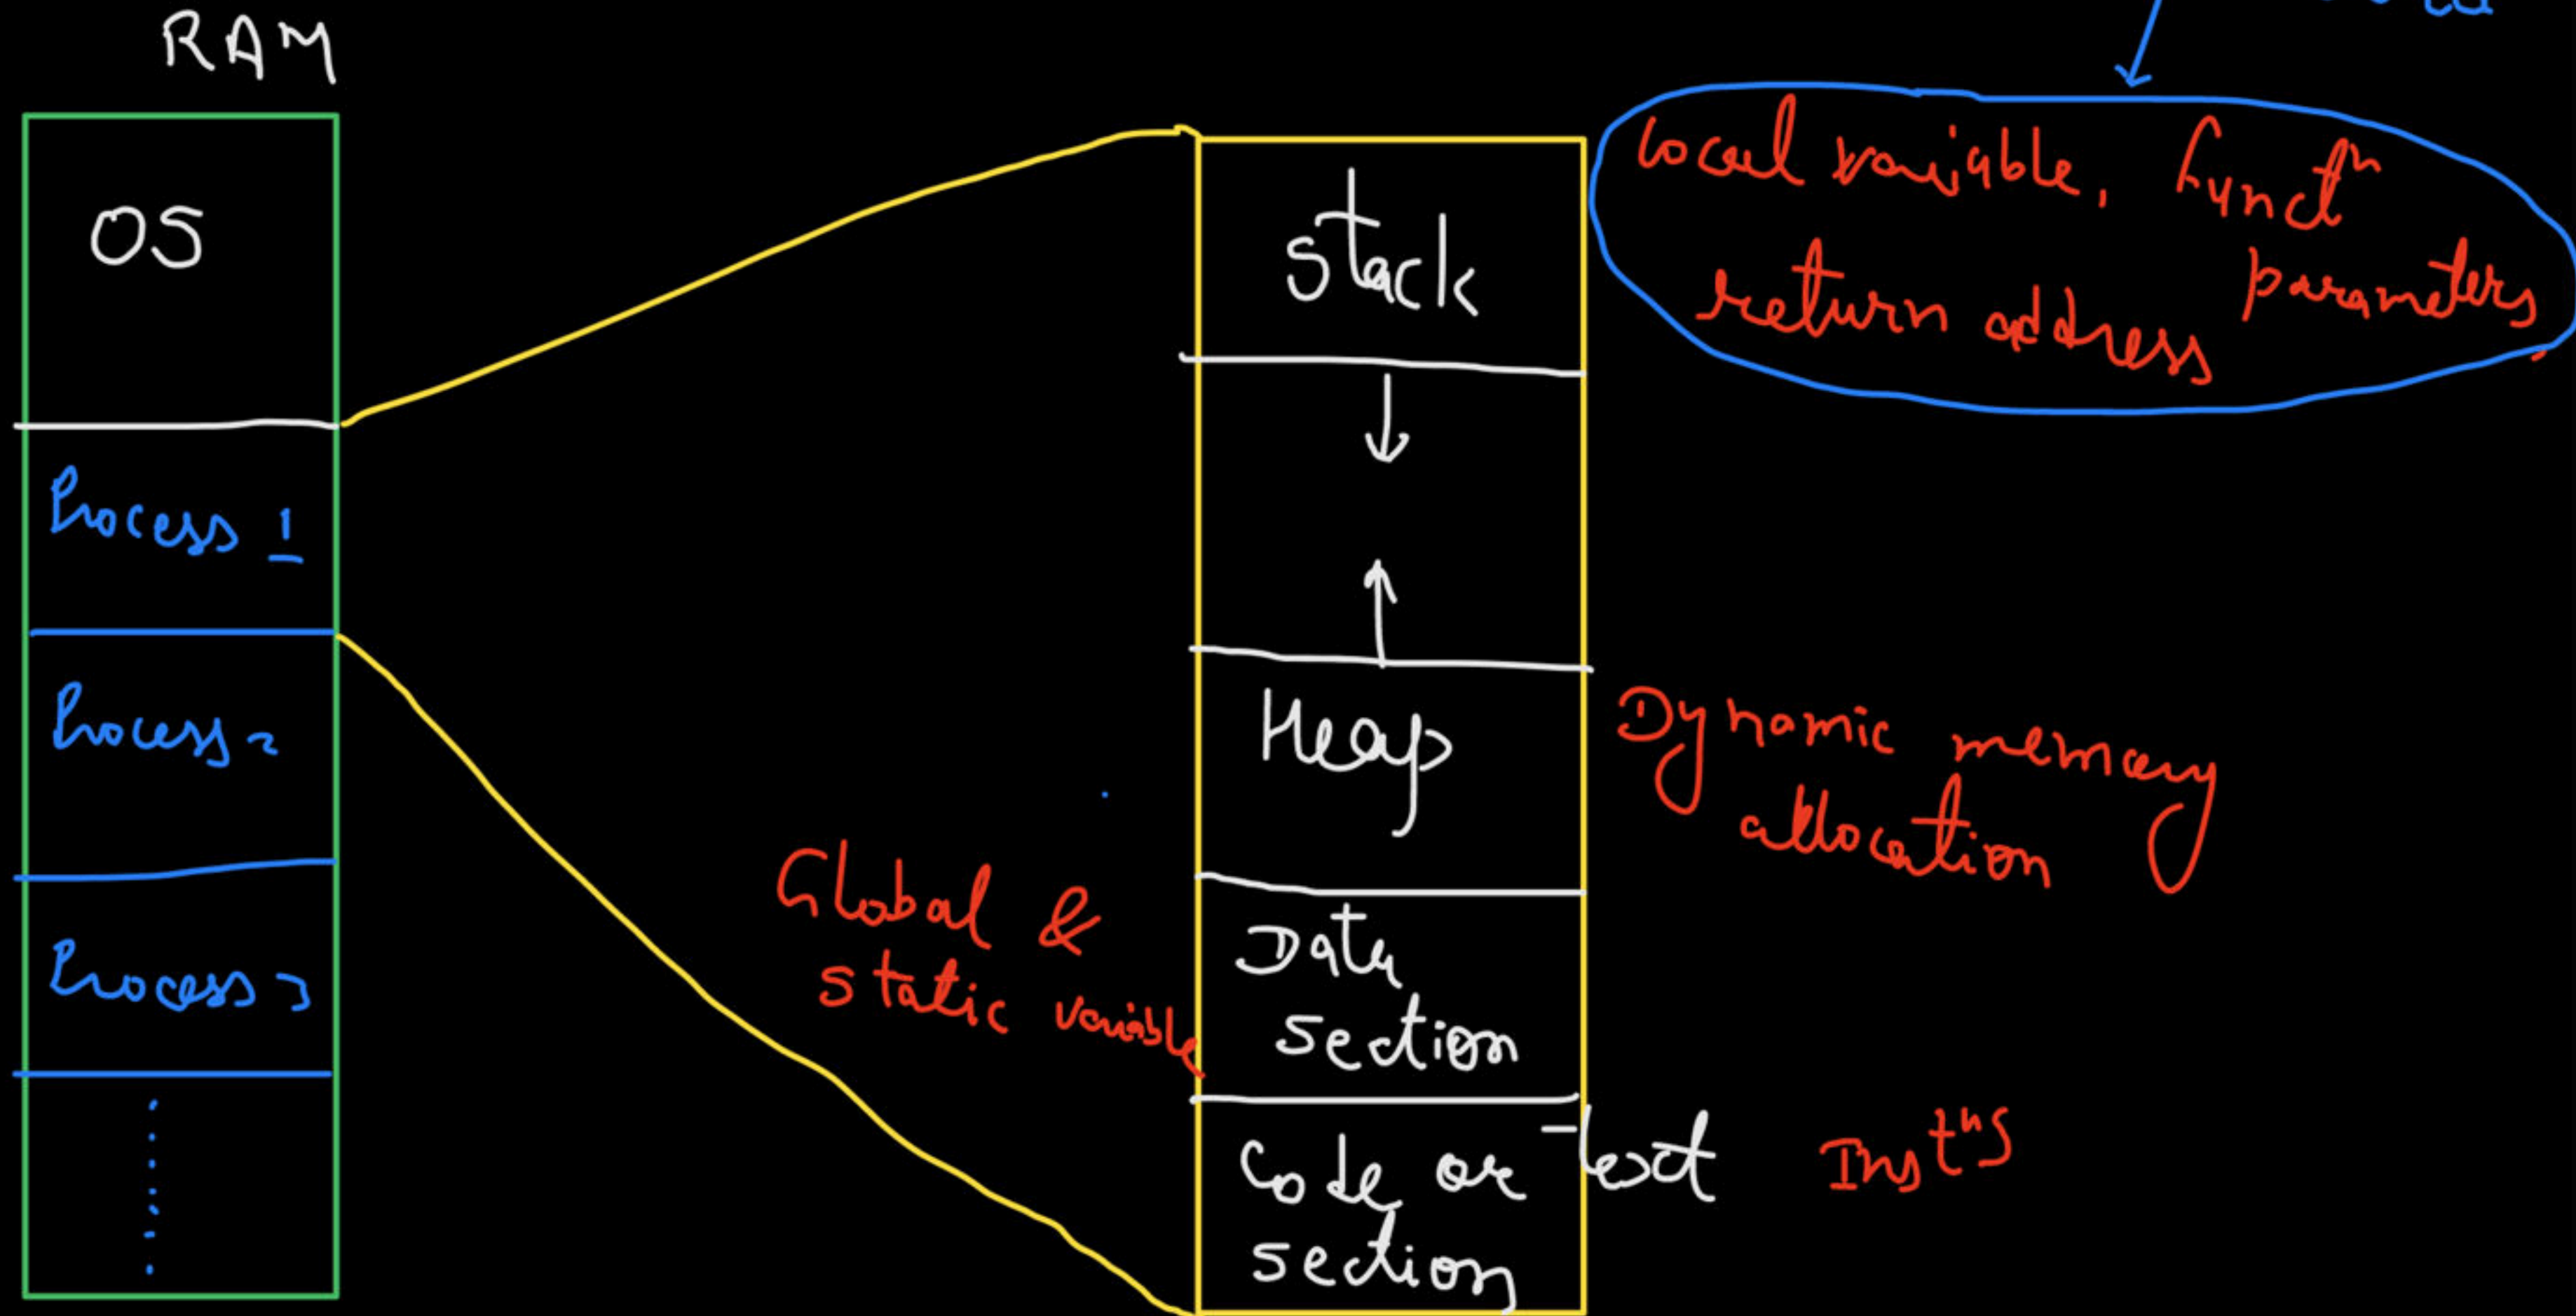 RAM
OS
Process 1
Process 2
Process 3
Stack
local variable, functⁿ
parameters,
return address
Heap
Dynamic memory
allocation
Global &
static variable
Data
section
Code or Text
section
Instⁿs